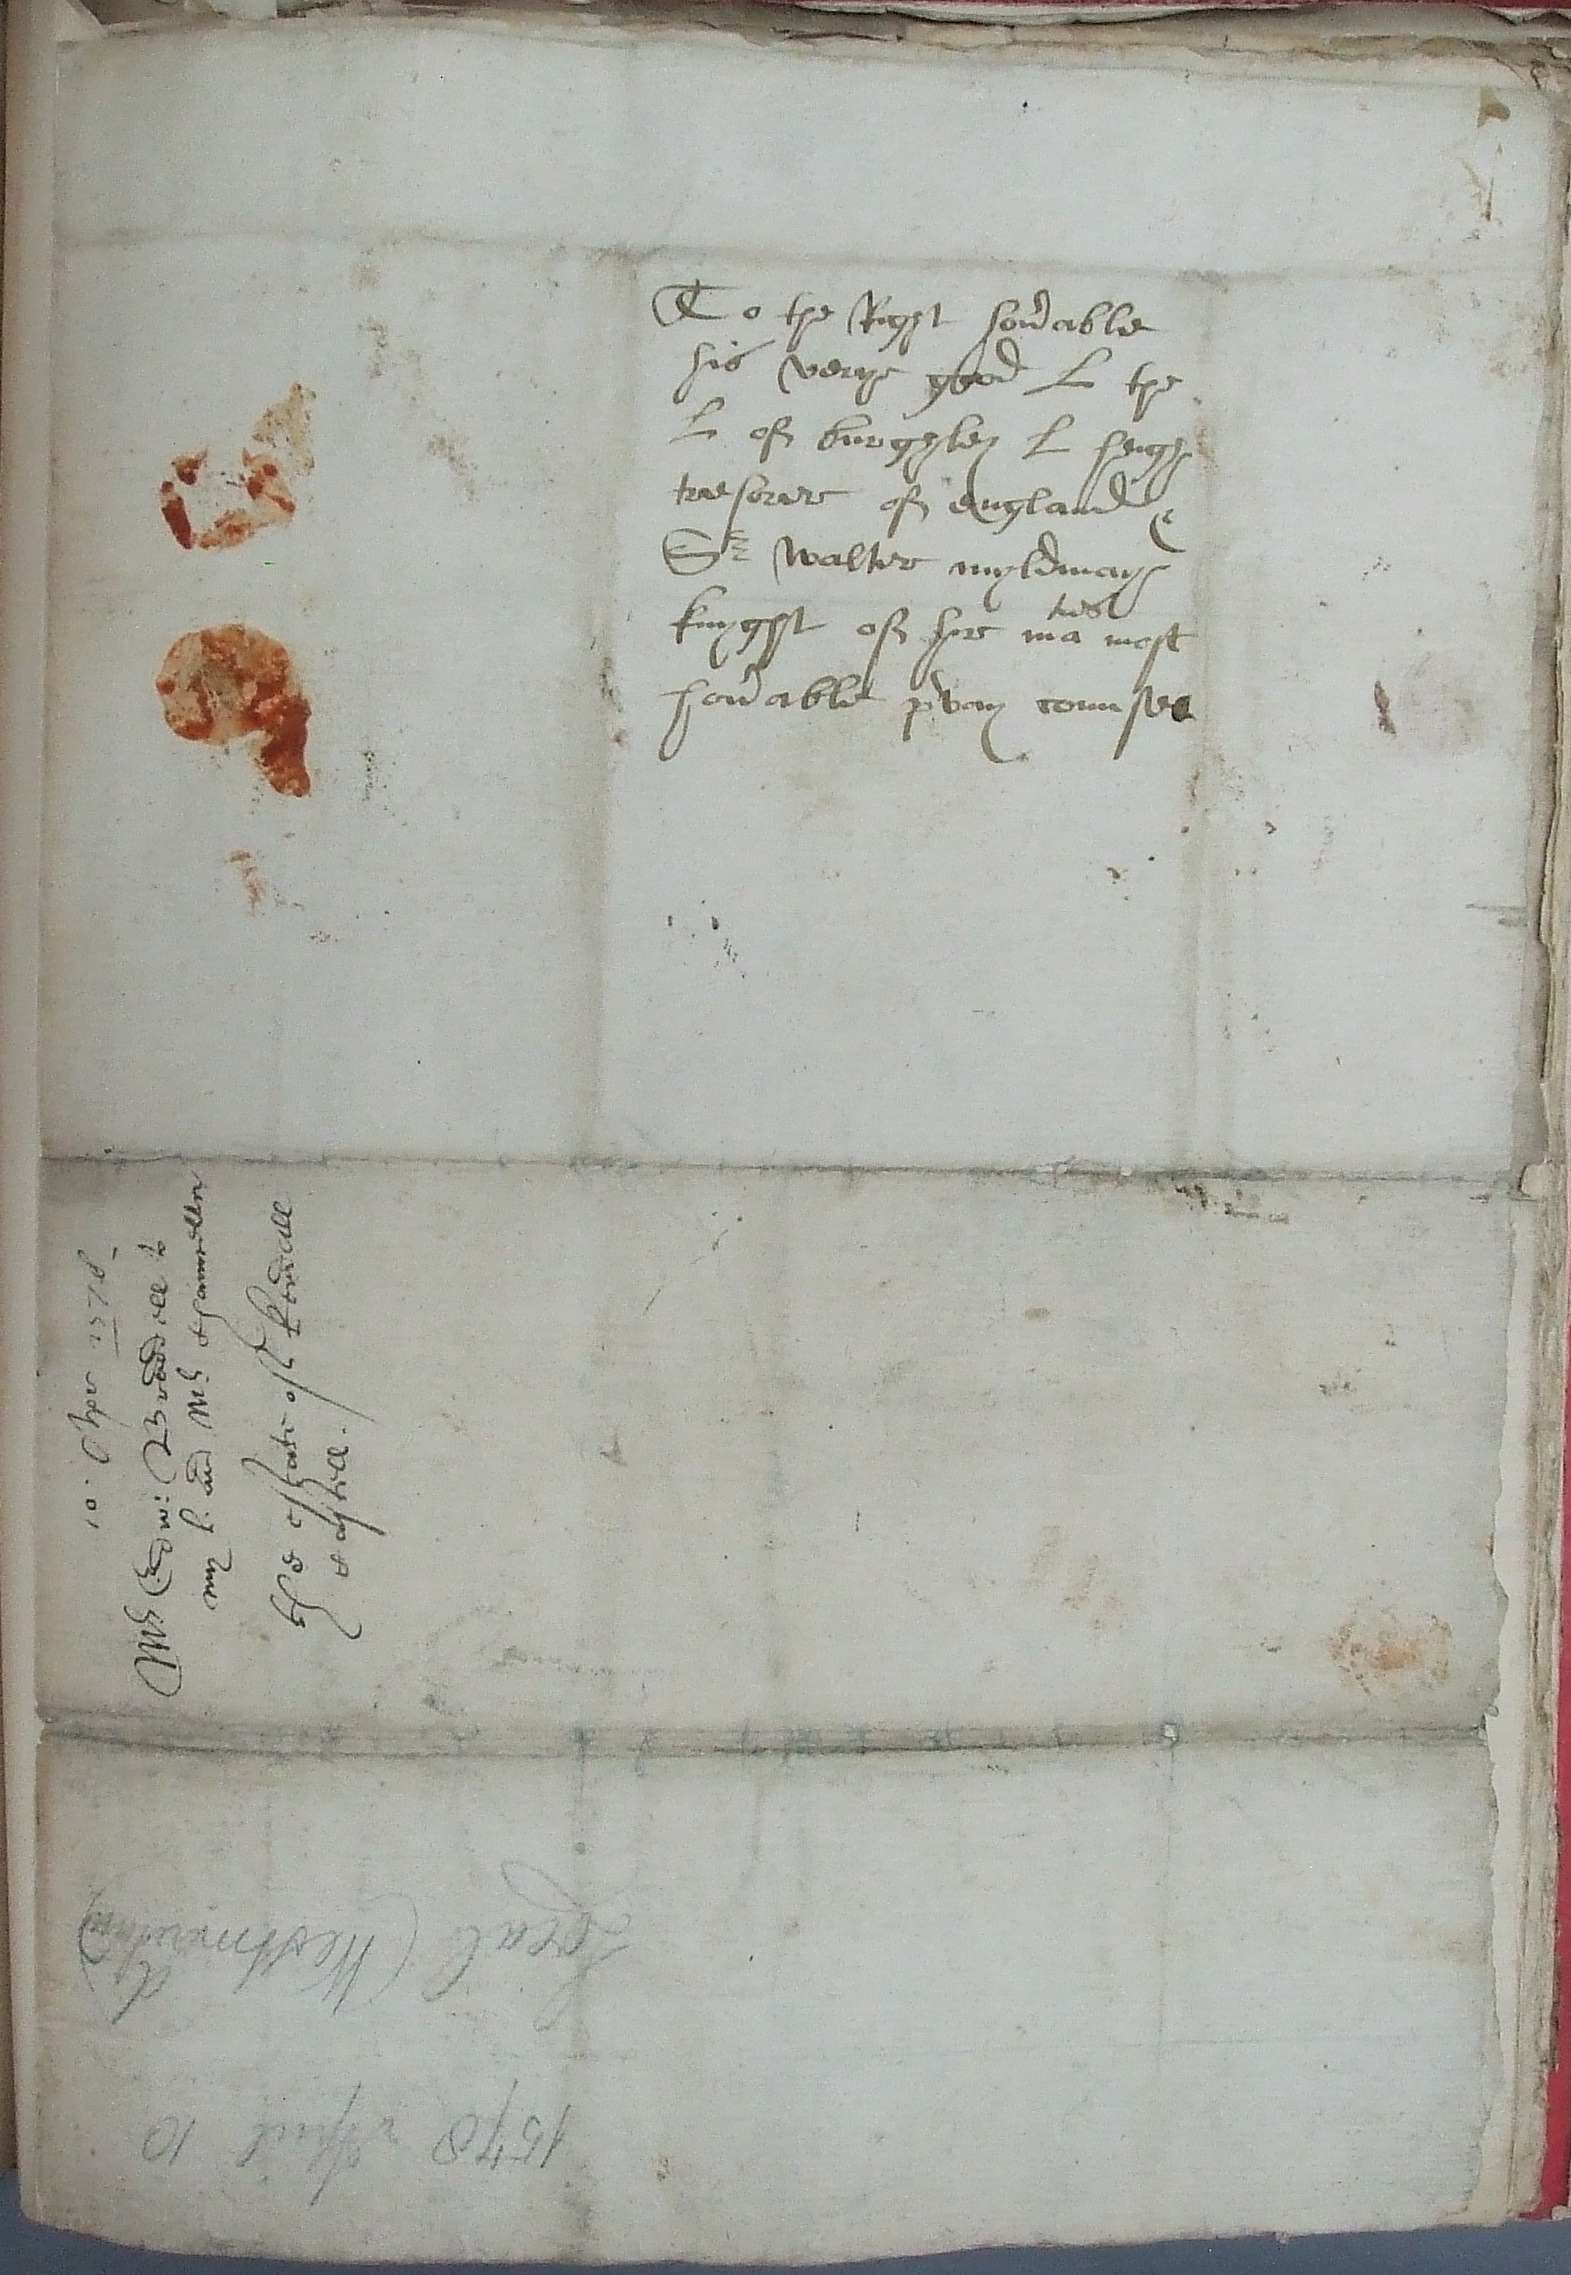 To the Right honorable
his verye good L the
L of burghley L heigh
tresorer of england &
Sr walter myldmaye
knyght of hir maties most
honorable prvay counsell
10 Apr 1578
Mr Edw: Braddyll to
my L. and Mr Chauncellor
The estate of Kendall
1578 April 10
Local (Westmorland)